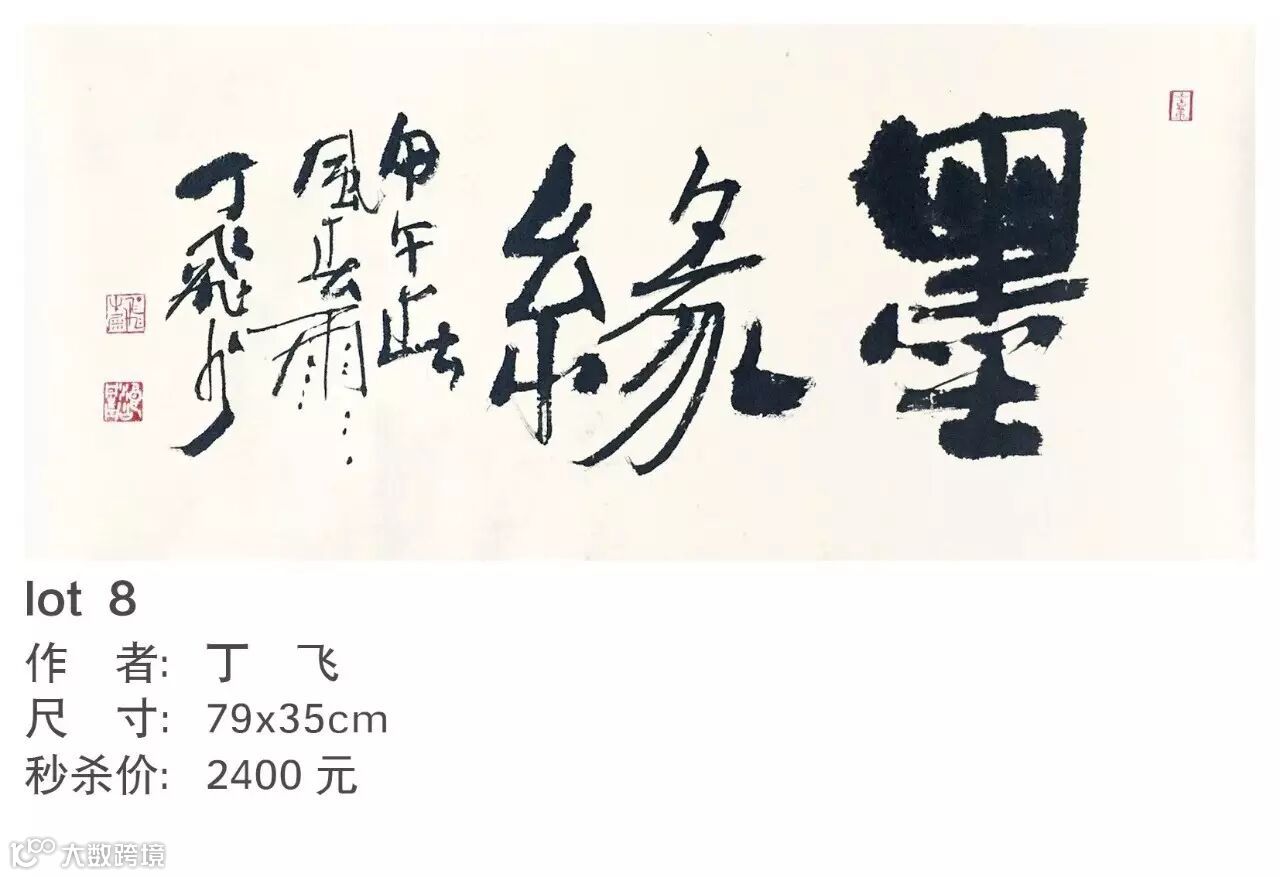 墨緣
甲午
丁飛书
lot 8
作 者: 丁 飞
尺 寸: 79x35cm
秒杀价: 2400 元
大数跨境